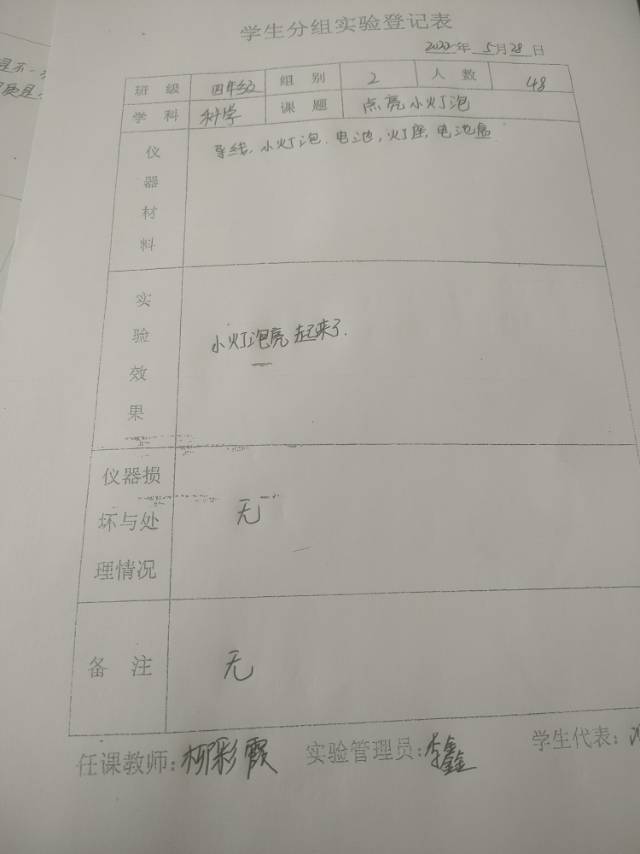 学生分组实验登记表
2022年 5月28日
班级 四年级 组别 2 人数 48
学科 科学 课题 点亮小灯泡
仪器材料 导线、小灯泡、电池,灯座,电池盒
实验效果 小灯泡亮起来了.
仪器损坏与处理情况 无
备注 无
任课教师:柯彩霞 实验管理员:李鑫 学生代表: